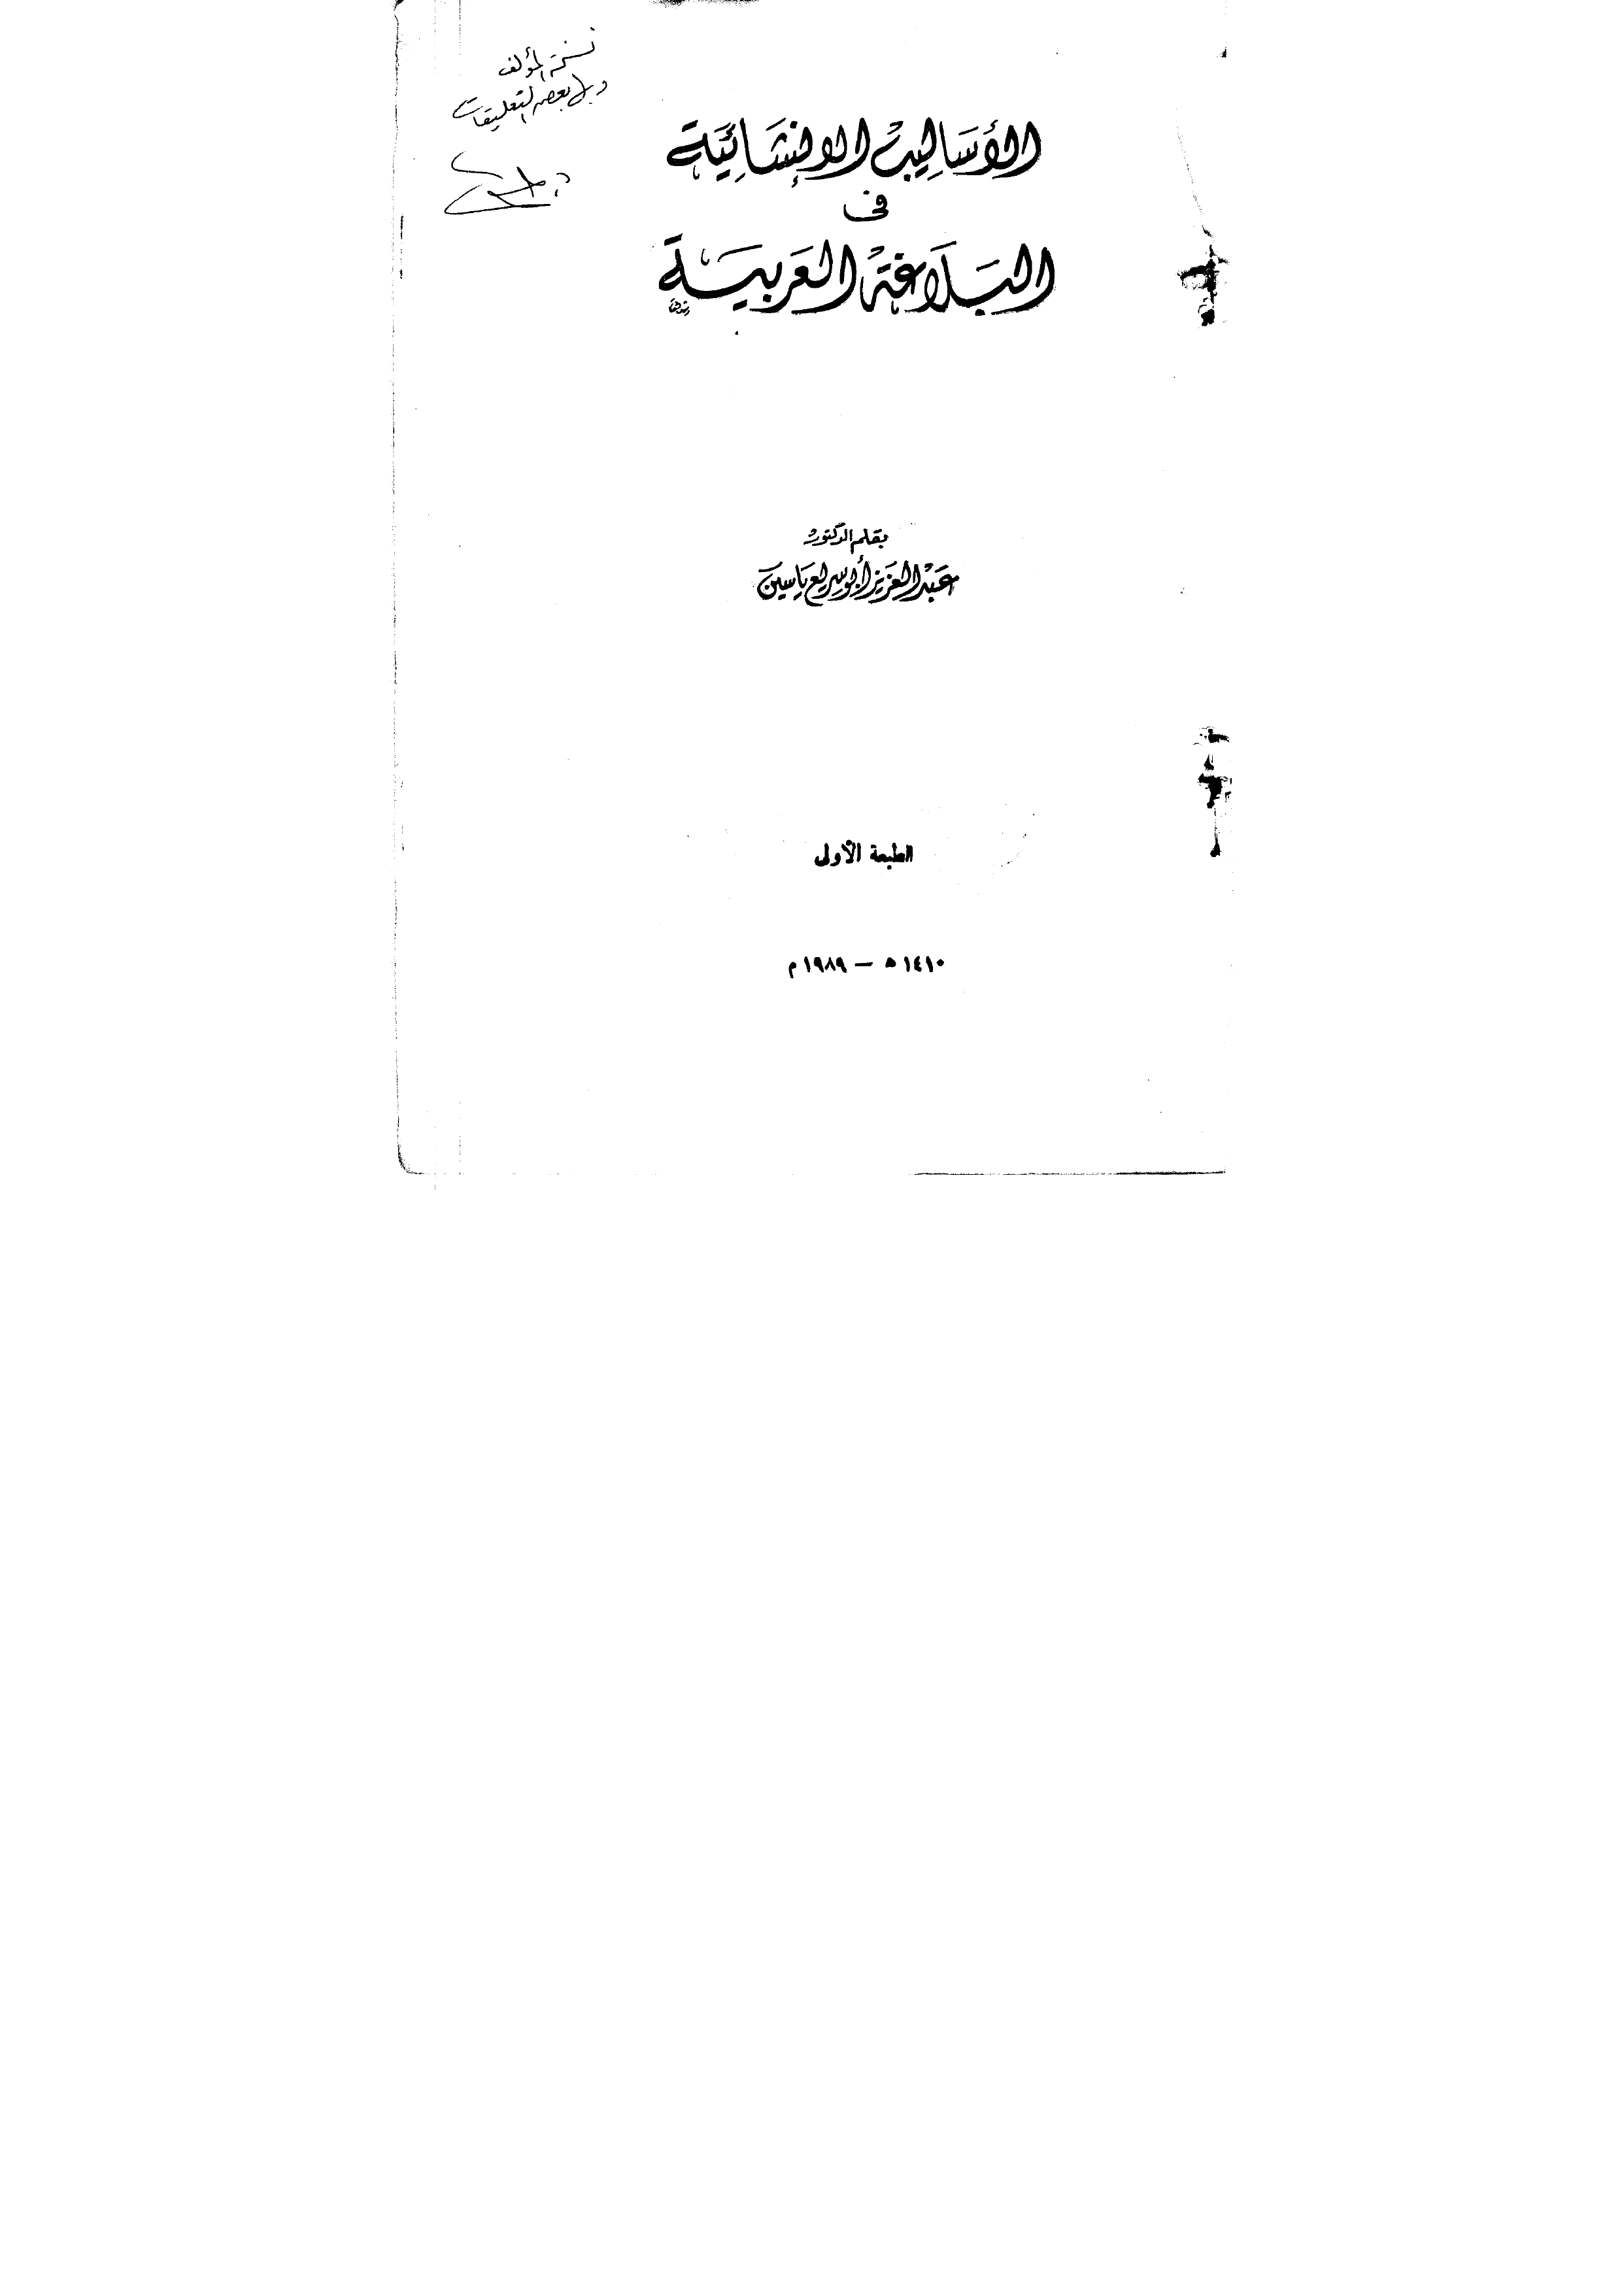 نسخة المؤلف
وبها بعض التعليقات
الأساليب الإنشائية
فى
البلاغة العربية
بقلم الدكتور
عبد العزيز أبو سريع ياسين
الطبعة الأولى
١٤١٠ ه — ١٩٨٩ م